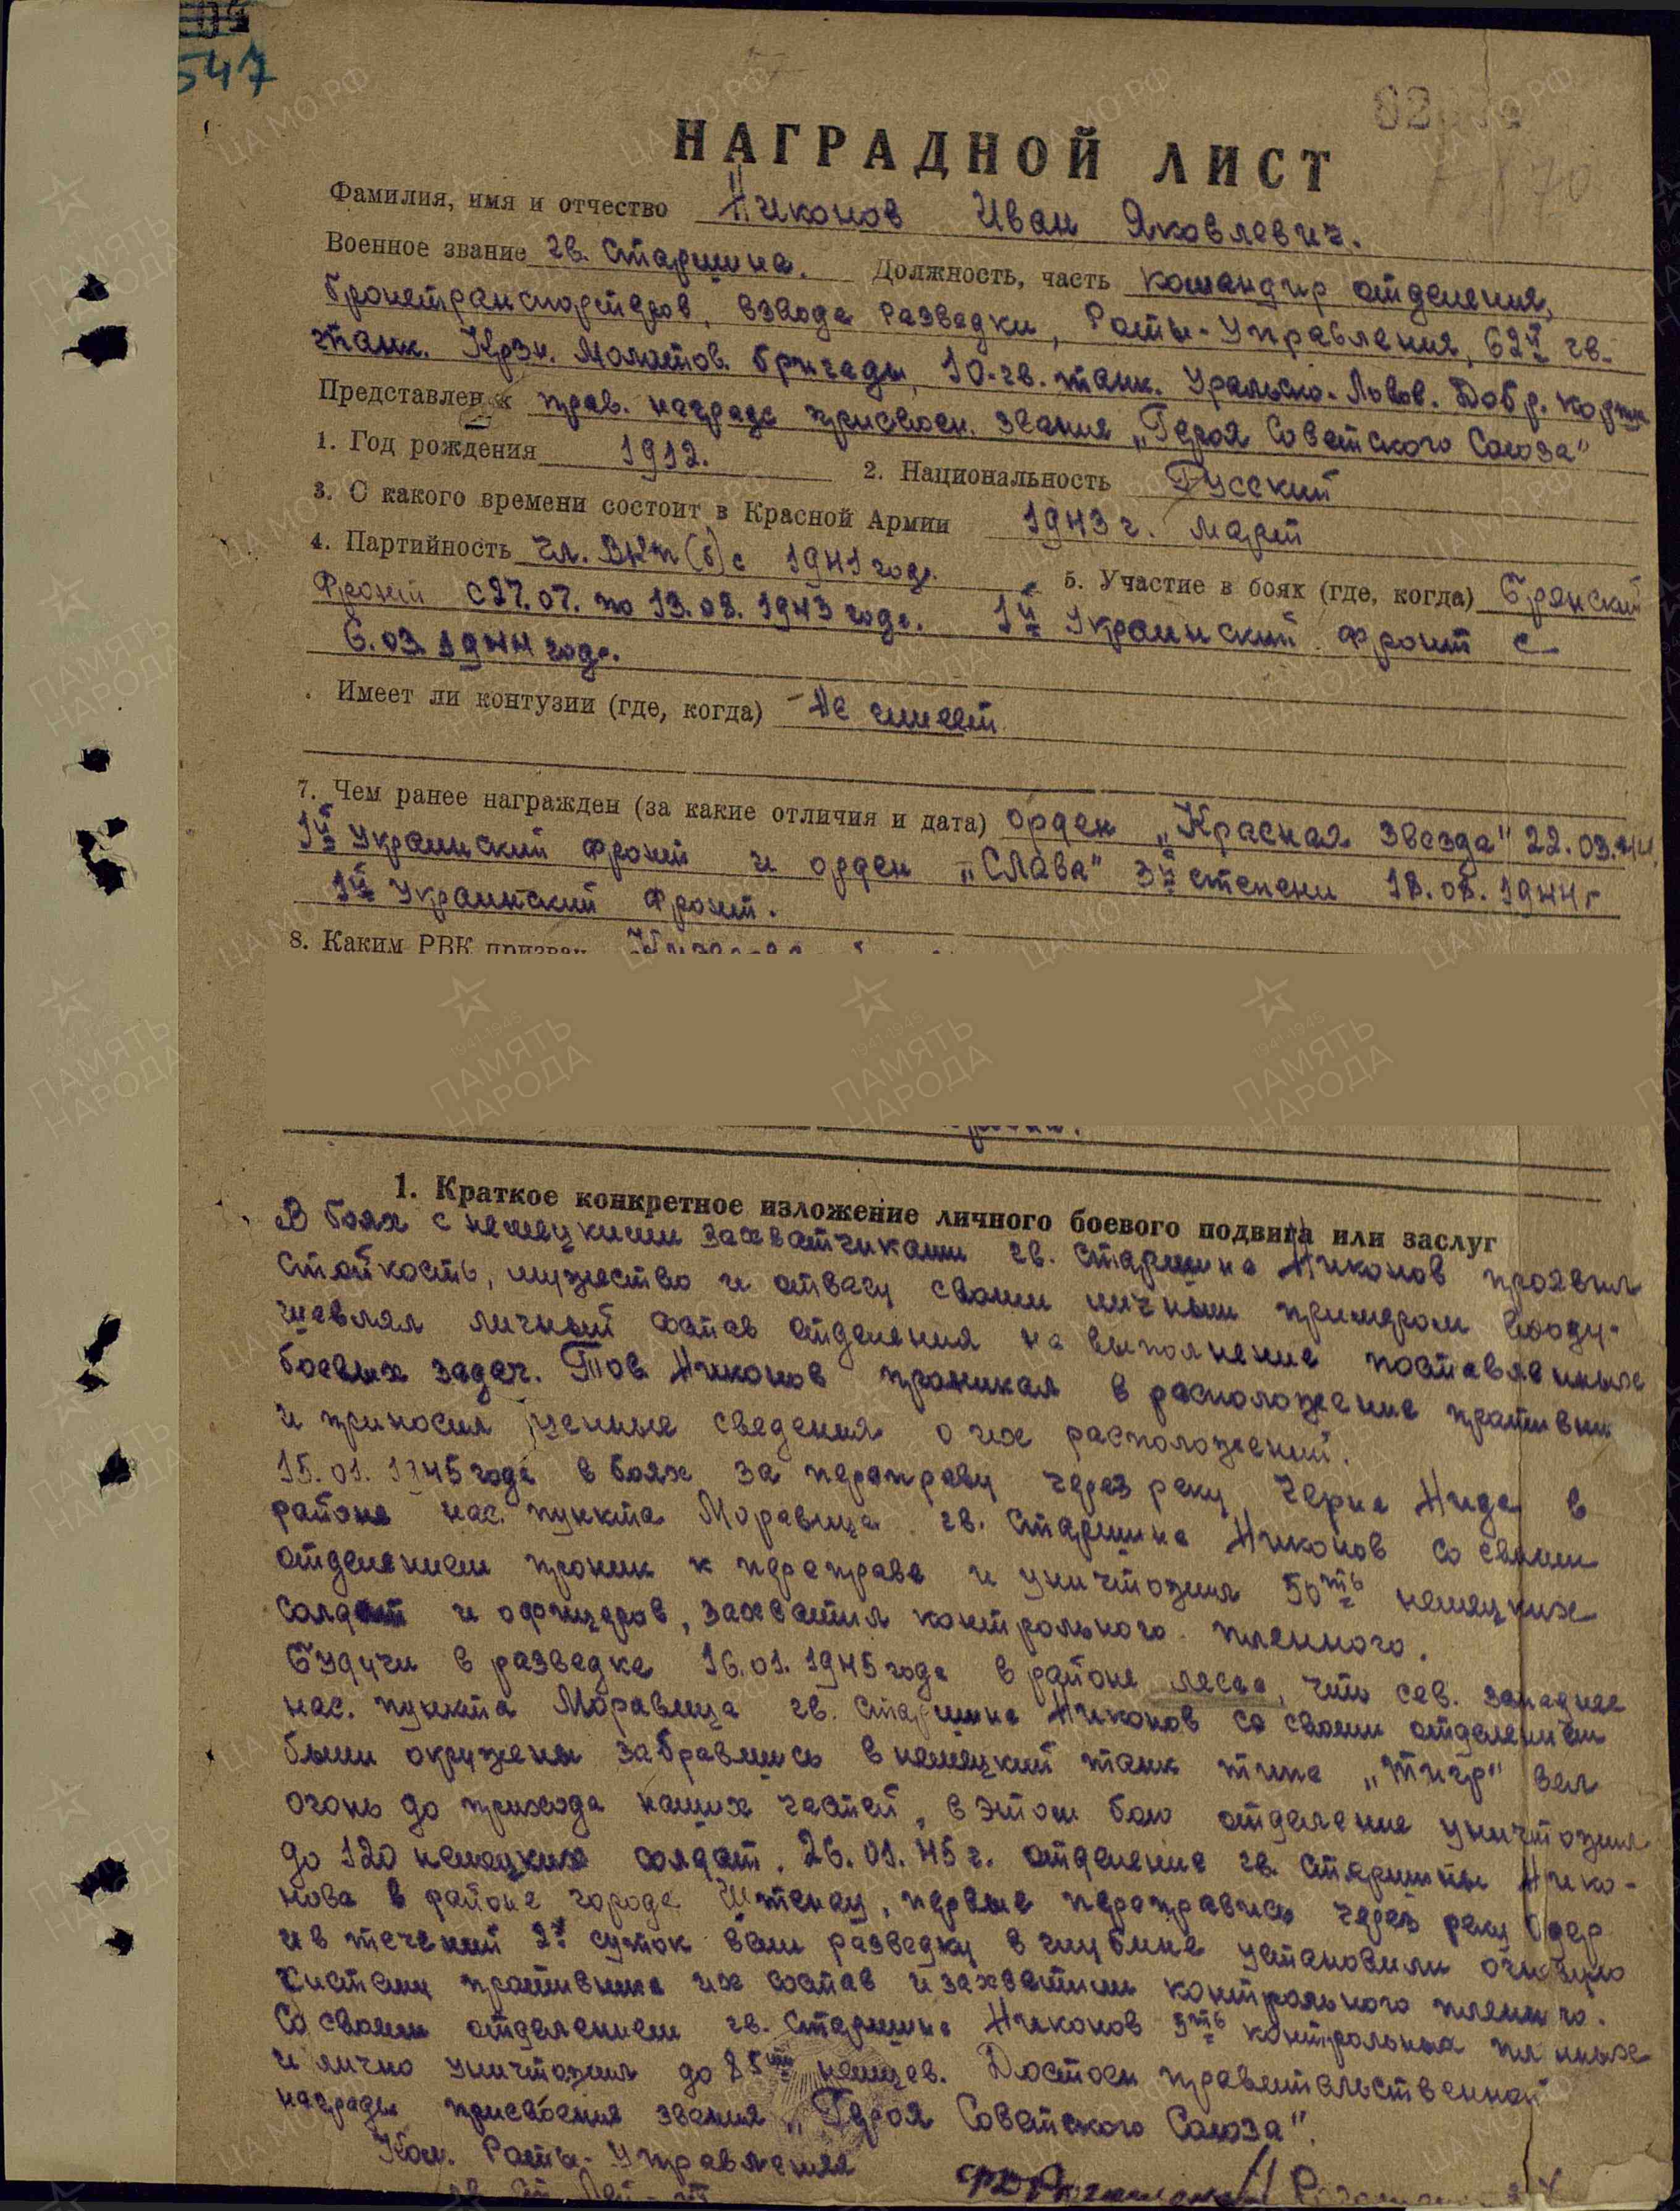 547
НАГРАДНОЙ ЛИСТ
Фамилия, имя и отчество Никонов Иван Яковлевич.
Военное звание гв. Старшина. Должность, часть командир отделения,
бронетранспортеров, взвода разведки, Роты-Управления, 62й гв.
танк. Крзн. Молотов. бригады, 10-гв. танк. Уральско-Львов. Добр. корпуса
Представлен к прав. награде присвоен. звания „Героя Советского Союза"
1. Год рождения 1912. 2. Национальность Русский
3. С какого времени состоит в Красной Армии 1943 г. март
4. Партийность Чл. ВКП(б) с 1941 года. 5. Участие в боях (где, когда) Брянский
Фронт с 27.07. по 13.08. 1943 года. 1й Украинский фронт с
6.03 1944 года.
Имеет ли контузии (где, когда) Не имеет
7. Чем ранее награжден (за какие отличия и дата) орден „Красная звезда" 22.03.44.
1й Украинский фронт и орден „Слава" 3й степени 18.08.1944 г
1й Украинский Фронт.
8. Каким РВК призван
1. Краткое конкретное изложение личного боевого подвига или заслуг
В боях с немецкими захватчиками гв. Старшина Никонов проявил
стойкость, мужество и отвагу своим личным примером вооду-
шевлял личный состав отделения на выполнение поставленных
боевых задач. Тов Никонов проникал в расположение противни
и приносил ценные сведения о их расположений.
15.01.1945 года в боях за переправу через реку Черна Нида в
районе нас. пункта Моравица гв. Старшина Никонов со своим
отделением проник к переправе и уничтожил 50ть немецких
солдат и офицеров, захватил контрольного пленного.
Будучи в разведке 16.01.1945 года в районе леса, что сев. западнее
нас. пункта Моравица гв. Старшина Никонов со своим отделением
были окружены забравшись в немецкий танк типа „Тигр" вел
огонь до прихода наших частей, в этом бою отделение уничтожил
до 120 немецких солдат. 26.01.45 г. отделение гв. Старшины Нико-
нова в районе города Штенау, первые переправись через реку Одер
и в течений 2х суток вели разведку в глубине установили огневую
систему противника их состав и захватили контрольного пленого.
Со своим отделением гв. Старшина Никонов 5ть контрольных пленных
и лично уничтожил до 85ти немцев. Достоен правительственной
награды присвоения звания „Героя Советского Союза".
Ком. Роты-Управления